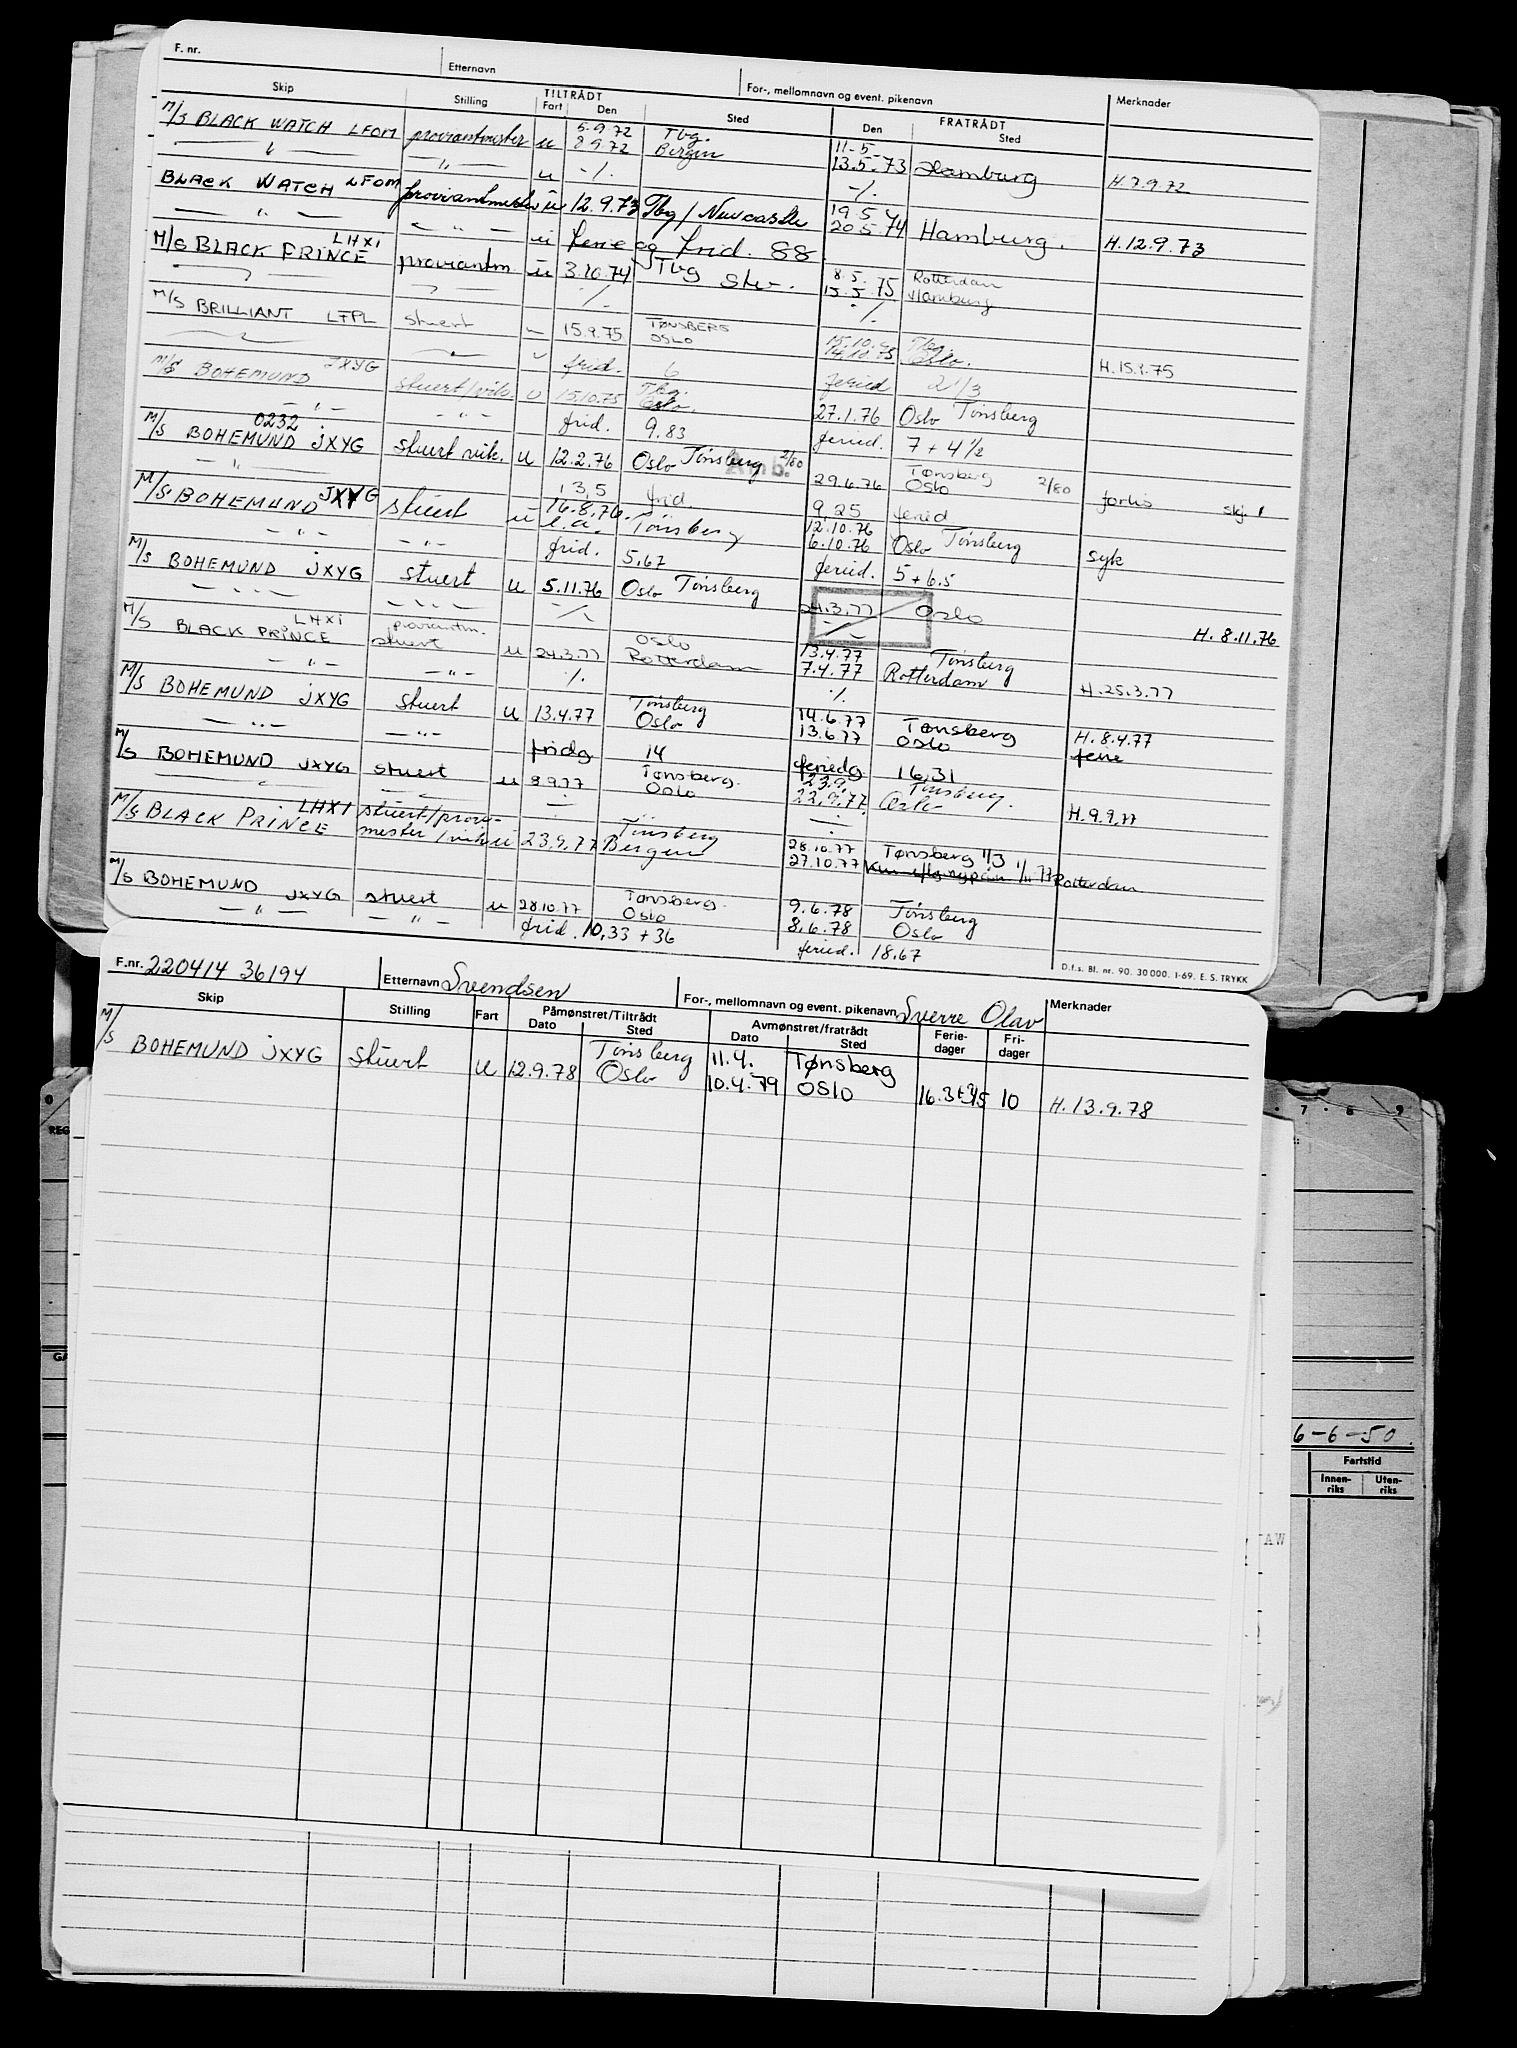 F. nr. Etternavn For-, mellomnavn og event. pikenavn Merknader
Skip Stilling TILTRÅDT Fart Den Sted FRATRÅDT Den Sted
M/S BLACK WATCH LFOM proviantmester u 5.9.72 Tbg. 11-5
8.9.72 Bergen 13.5.73 Hamburg H.7.9.72
— " — — " — u -/. -/.
BLACK WATCH LFOM proviantmester u 12.9.73 Tbg/Newcastle 19.5
20.5.74 Hamburg. H.12.9.73
— " — — " — u ferie og frid. 88
M/S BLACK PRINCE LHXI proviantm. u 3.10.74 Tbg 8.5. Rotterdam
15.5.75 Hamburg
-/. -/.
M/S BRILLIANT LFPL stuert u 15.9.75 TØNSBERG
OSLO 15.10. Tbg.
14.10.75 Oslo. H.15.9.75
frid. 6 feried 2 1/3
M/S BOHEMUND JXYG stuert/vik. u 15.10.75 Tbg.
Oslo 27.1.76 Oslo Tønsberg
— " — — " — frid. 9.83 feried. 7 + 4 1/2
0232
M/S BOHEMUND JXYG stuert vik. u 12.2.76 Oslo Tønsberg 2/80 29.6.76 Tønsberg
Oslo 2/80
— " — 13,5 frid. 9,25 feried
M/S BOHEMUND JXYG stuert u 16.8.76. Tønsberg 12.10.76
6.10.76 Oslo Tønsberg syk
— " — — " — frid. 5,67 feried. 5 + 6.5
M/S BOHEMUND JXYG stuert u 5.11.76 Oslo Tønsberg 24.3.77 Oslo H. 8.11.76
— " — — " —
M/S BLACK PRINCE LHXI proviantm.
stuert u 24.3.77 Oslo
Rotterdam 13.4.77 Tønsberg
7.4.77 Rotterdam H.25.3.77
— " — — " — -/. -/.
M/S BOHEMUND JXYG stuert u 13.4.77 Tønsberg
Oslo 14.6.77 Tønsberg
13.6.77 Oslo H. 8.4.77
— " — — " — fridg 14 feriedg 16,31 ferie
M/S BOHEMUND JXYG stuert u 8.9.77 Tønsberg.
Oslo 23.9. Tønsberg.
22.9.77 Oslo H.9.9.77
M/S BLACK PRINCE LHXI stuert/prov.
mester/vik u 23.9.77 Tønsberg
Bergen 28.10.77 Tønsberg 1/3
27.10.77 1/11 77 Rotterdam
M/S BOHEMUND JXYG stuert u 28.10.77 Tønsberg.
Oslo 9.6.78 Tønsberg
8.6.78 Oslo
— " — — " — frid. 10,33 + 36 feried. 18.67
D.f.s. Bl. nr. 90. 30 000. 1-69. E. S. TRYKK
F.nr. 220414 36194 Etternavn Svendsen For-, mellomnavn og event. pikenavn Sverre Olav Merknader
Skip Stilling Fart Påmønstret/Tiltrådt Dato Sted Avmønstret/fratrådt Dato Sted Ferie-dager Fri-dager
M/S BOHEMUND JXYG stuert u 12.9.78 Tønsberg
Oslo 11.4. Tønsberg
10.4.79 OSLO 10 H.13.9.78
7 8 9
REG
GÅ
6-6-50.
Fartstid
Innen-riks Uten-riks
AW